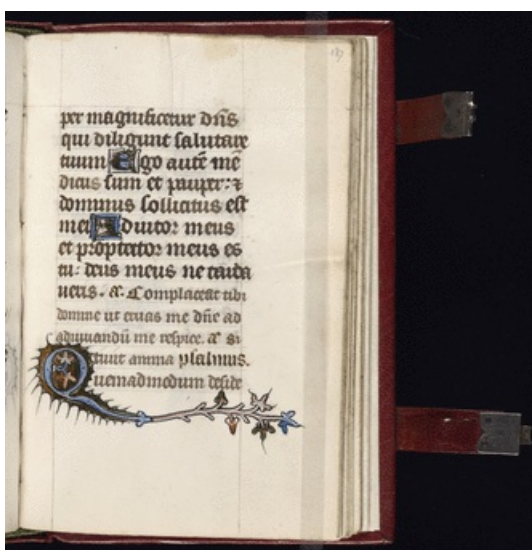 per magnificetur dn̄s
qui diligunt salutare
tuum Ego autē me
dicus sum et pauper: ⁊
dominus sollicitus est
mei Adiutor meus
et protector meus es
tu: deus meus ne tarda
ueris. a. Complaceat tibi
domine ut eruas me dn̄e ad
adiuuandū me respice. a. Si
tiuit anima psalmus.
Quemadmodum deside